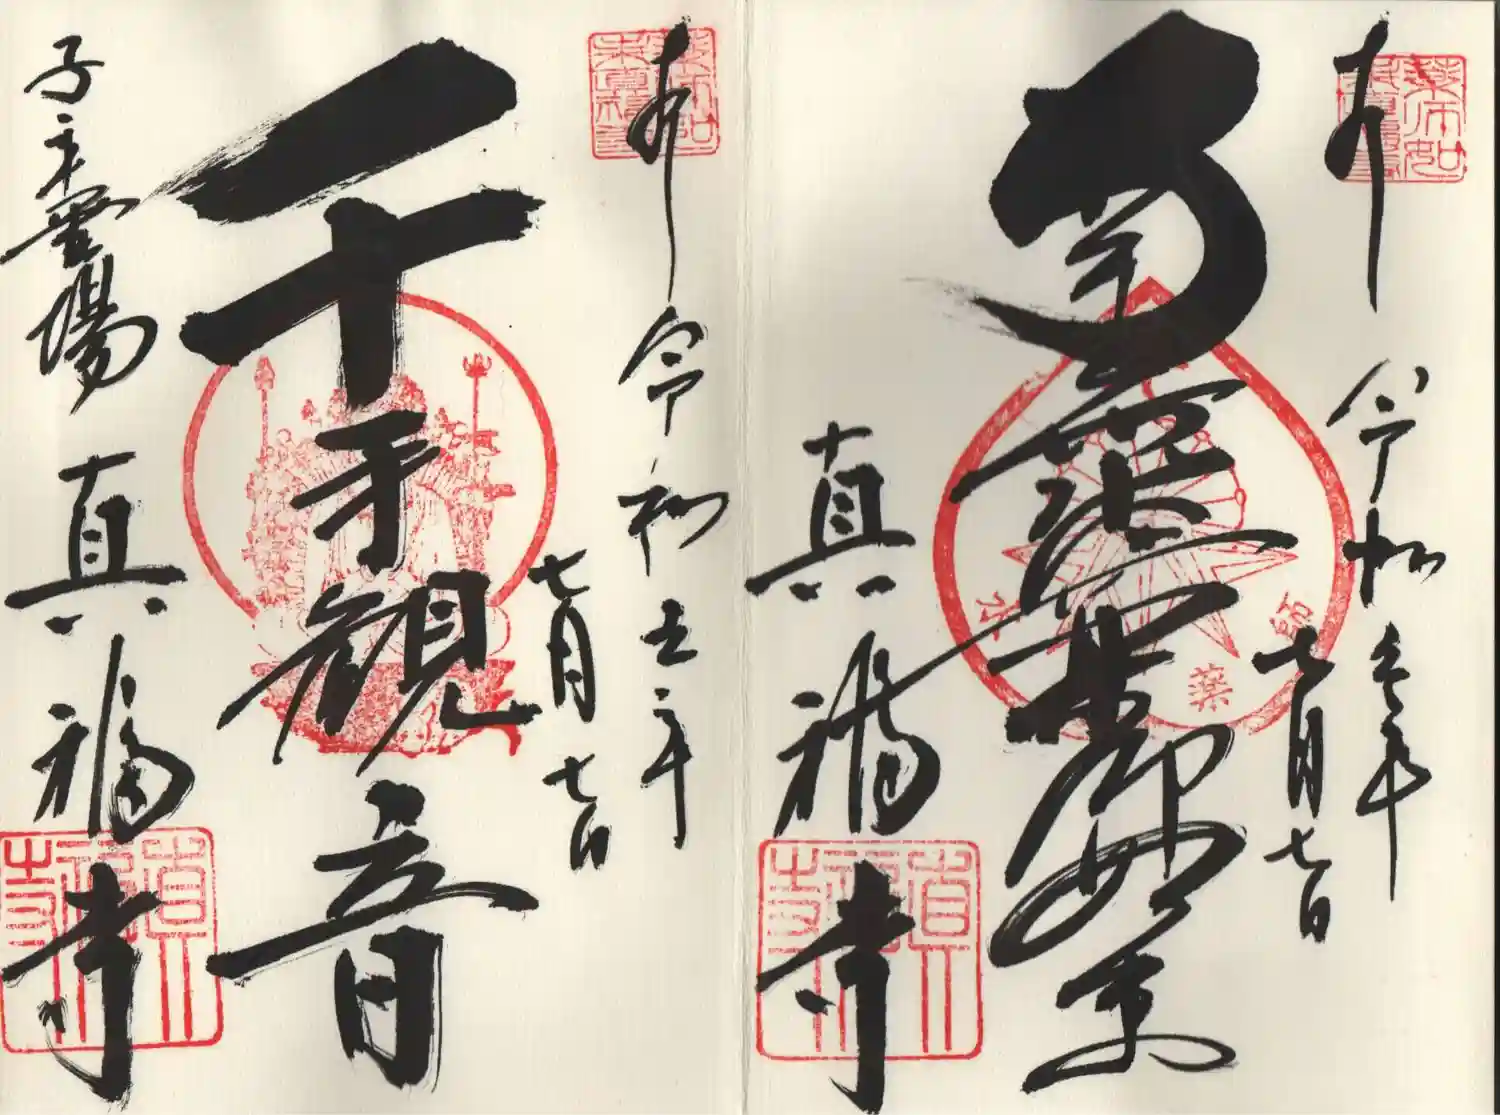 奉
令和五年
七月七日
南無薬師如来
真福寺
真福寺
水
薬
師
奉
令和五年
七月七日
千手観音
霊場
真福寺
真福寺